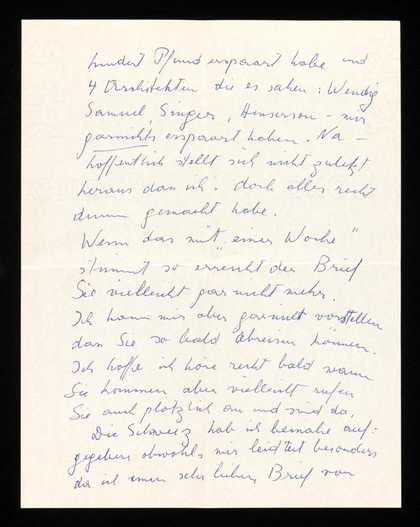 hundert Pfund erspaart habe und
4 Architekten die es sahen: Wendig
Samuel, Singer, Henserson – mir
garnichts erspaart haben. Na –
hoffentlich stellt sich nicht zuletzt
heraus dan ich doch alles recht
dumm gemacht habe.
Wenn das mit "einer Woche"
stimmt so erreicht der Brief
Sie vielleicht gar nicht mehr.
Ich kann mir aber garnicht vorstellen
dan Sie so bald abreisen können.
Ich hoffe ich höre recht bald wann
Sie kommen aber vielleicht rufen
Sie auch plötzlich an und sind da.
Die Schweiz hab ich beinahe auf-
gegeben obwohls mir leidtut besonders
da ich einen sehr lieben Brief von